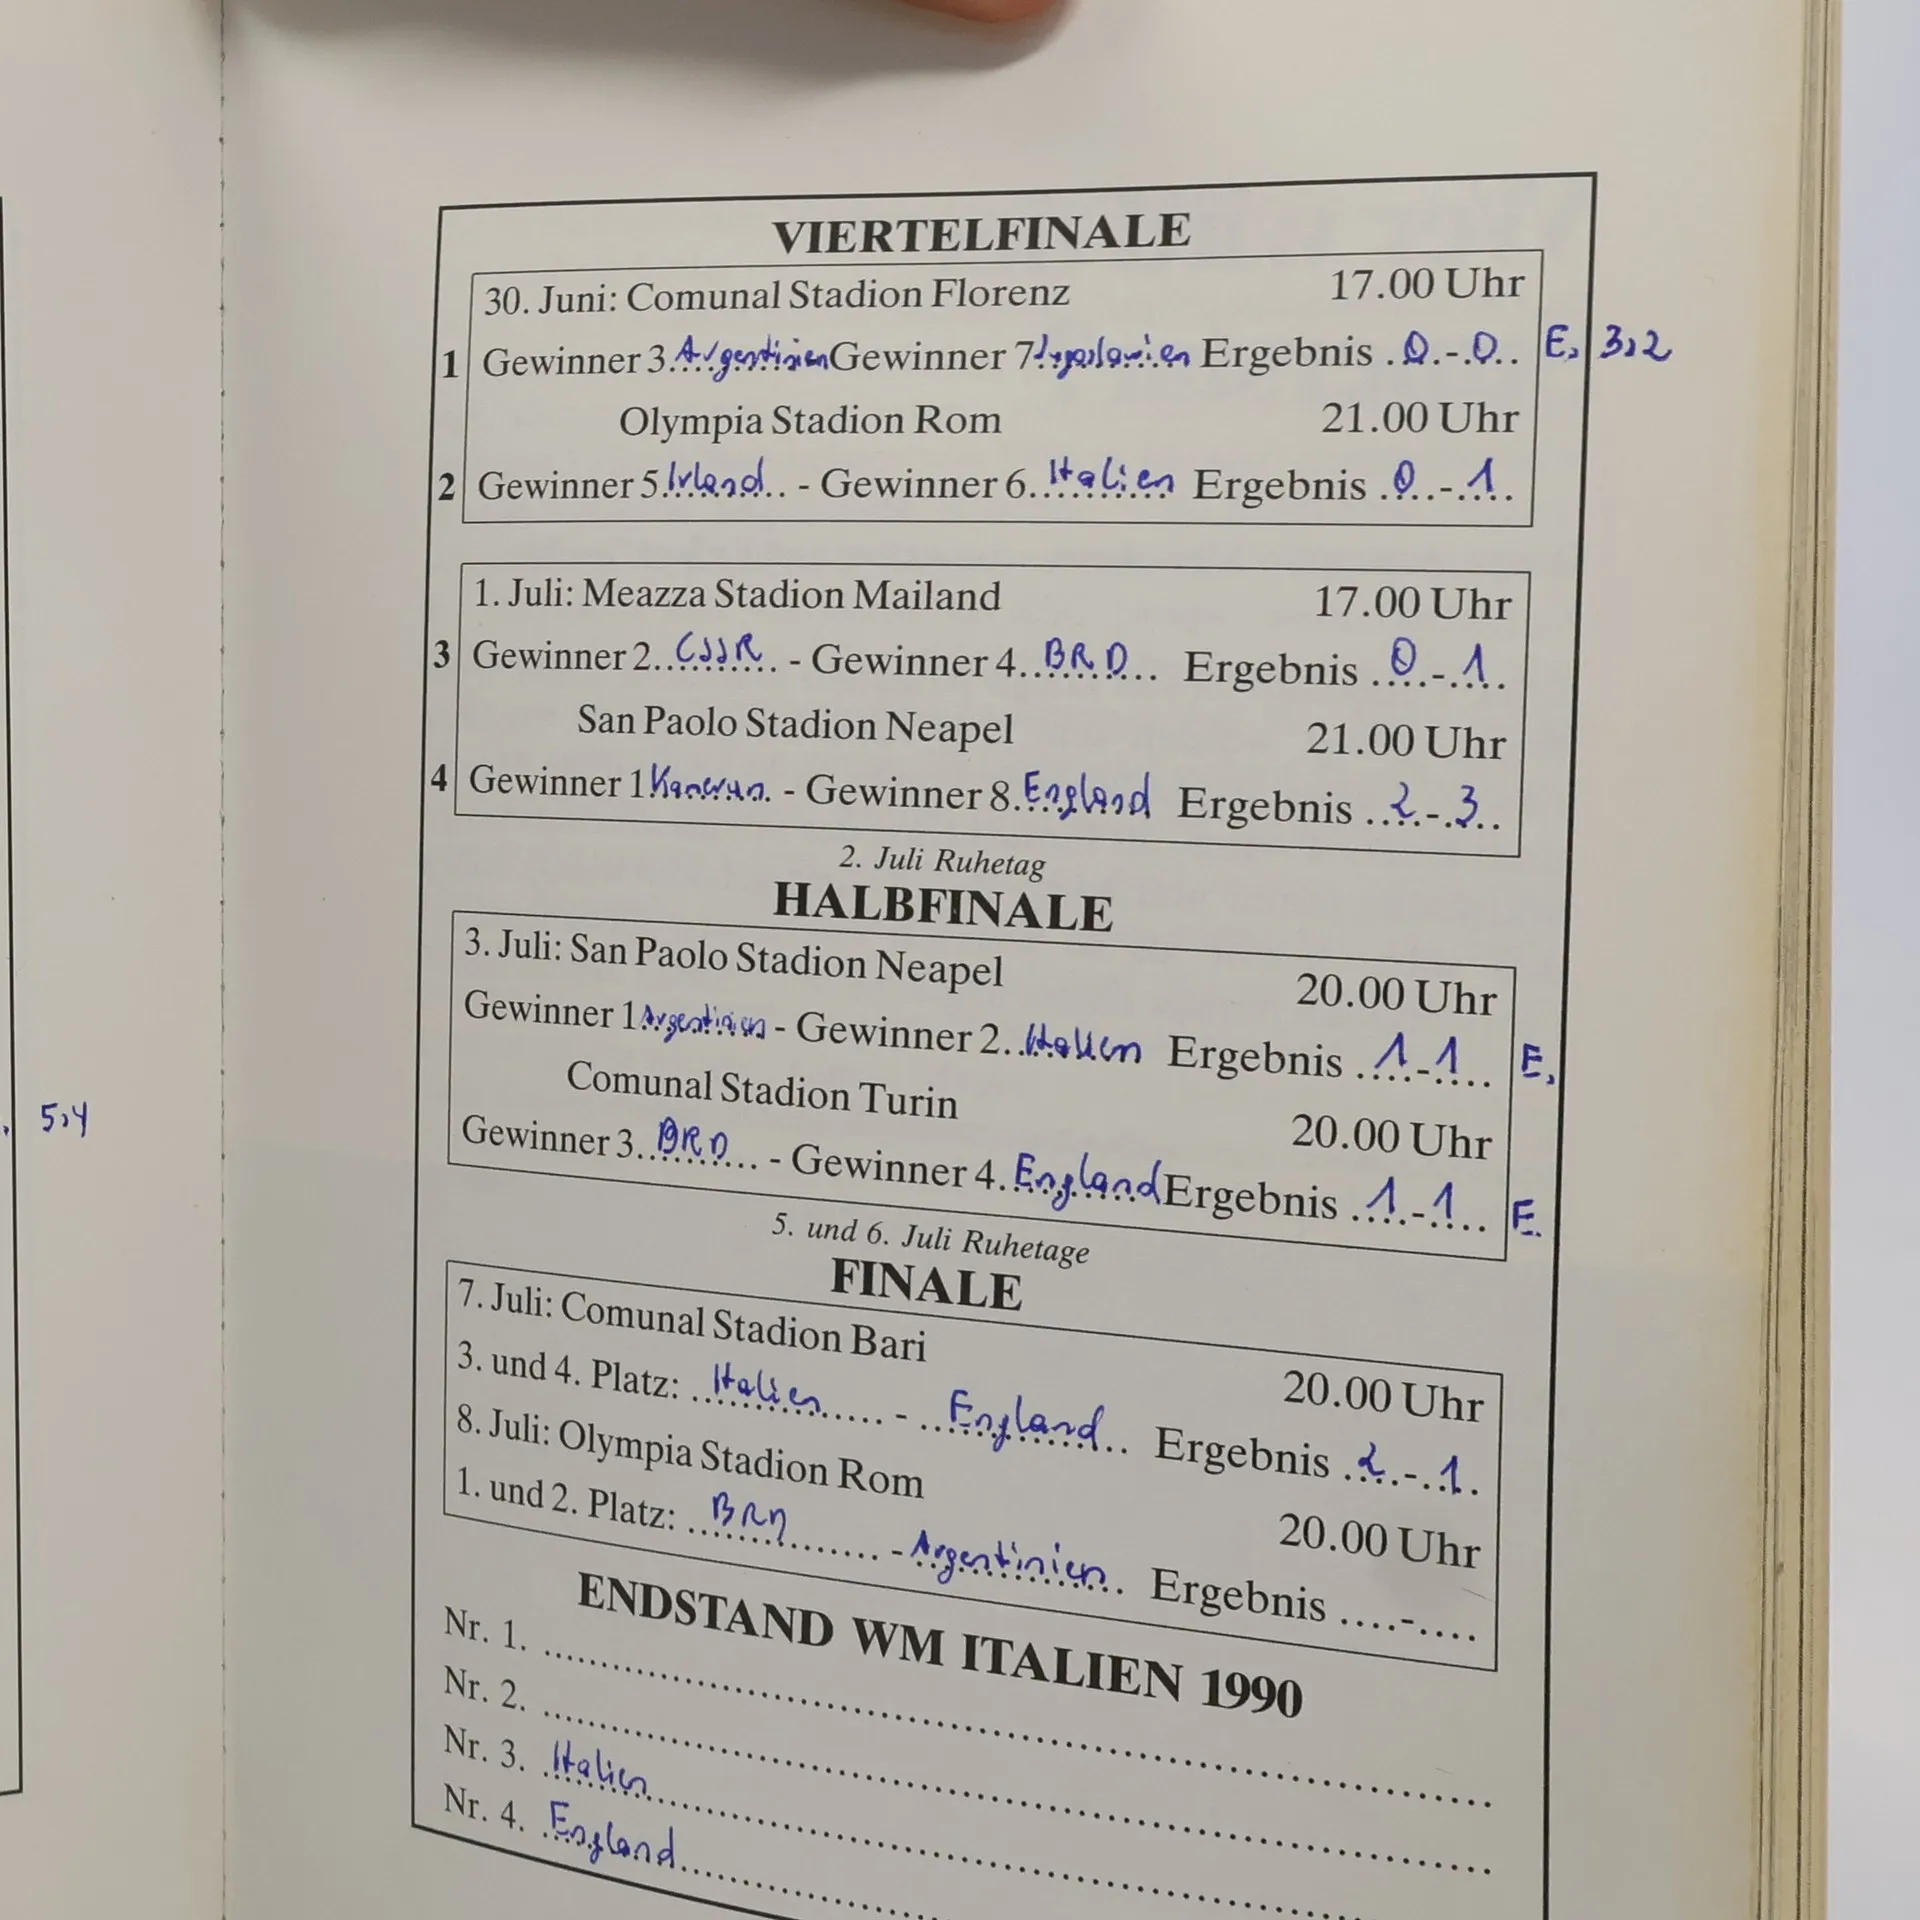 VIERTELFINALE
30. Juni: Comunal Stadion Florenz 17.00 Uhr
1 Gewinner 3. Argentinien Gewinner 7 Jugoslawien Ergebnis 0 - 0 E, 3:2
Olympia Stadion Rom 21.00 Uhr
2 Gewinner 5. Irland - Gewinner 6. Italien Ergebnis 0 - 1
1. Juli: Meazza Stadion Mailand 17.00 Uhr
3 Gewinner 2. CSSR - Gewinner 4. BRD Ergebnis 0 - 1
San Paolo Stadion Neapel 21.00 Uhr
4 Gewinner 1 Kamerun - Gewinner 8. England Ergebnis 2 - 3
2. Juli Ruhetag
HALBFINALE
3. Juli: San Paolo Stadion Neapel 20.00 Uhr
Gewinner 1 Argentinien - Gewinner 2. Italien Ergebnis 1 - 1 E,
Comunal Stadion Turin 20.00 Uhr
5:4
Gewinner 3. BRD - Gewinner 4. England Ergebnis 1 - 1 E.
5. und 6. Juli Ruhetage
FINALE
7. Juli: Comunal Stadion Bari 20.00 Uhr
3. und 4. Platz: Italien - England Ergebnis 2 - 1
8. Juli: Olympia Stadion Rom 20.00 Uhr
1. und 2. Platz: BRD - Argentinien Ergebnis ....-....
ENDSTAND WM ITALIEN 1990
Nr. 1.
Nr. 2.
Nr. 3. Italien
Nr. 4. England